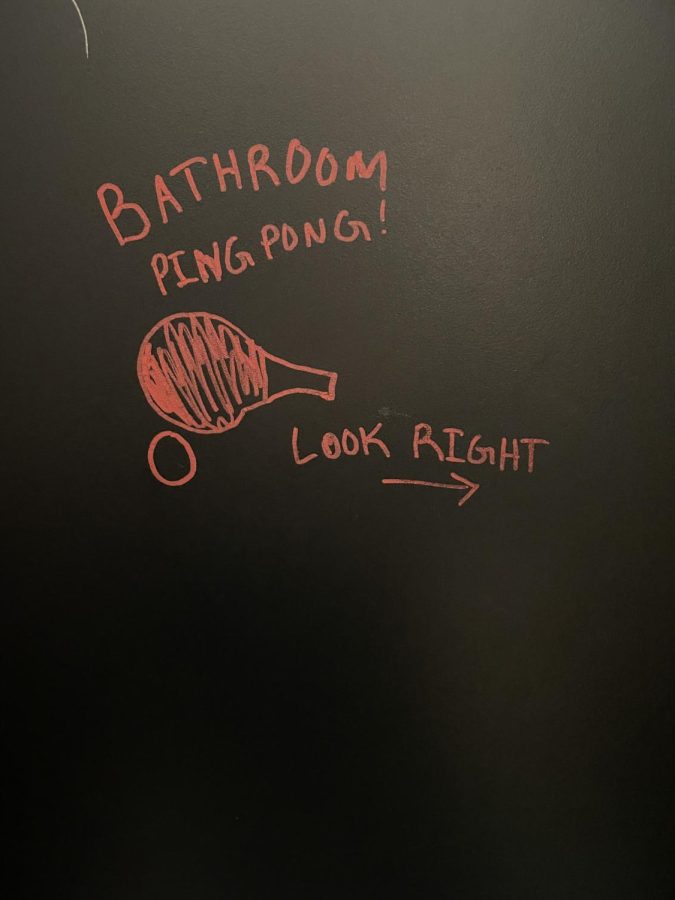 BATHROOM
PING PONG!
LOOK RIGHT